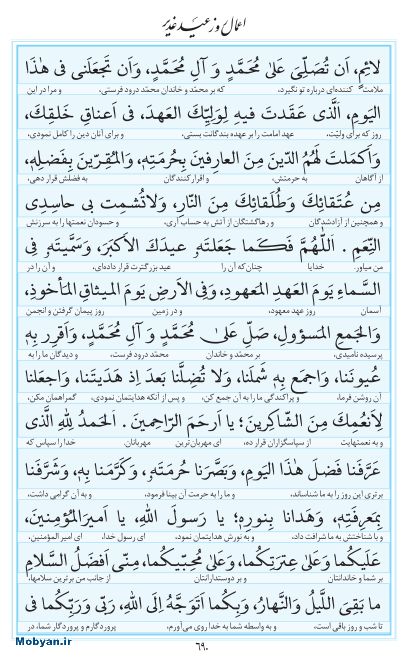 اعمال روز عید غدیر
لائِمٍ، اَن تُصَلِّیَ عَلیٰ مُحَمَّدٍ وَ آلِ مُحَمَّدٍ، وَاَن تَجعَلَنی فی هٰذَا
ملامت کننده‌ای درباره تو نگیرد، که بر محمّد و خاندان محمّد درود فرستی، و مرا در این
الیَومِ، اَلَّذی عَقَدتَ فیهِ لِوَلِیِّكَ العَهدَ، فی اَعناقِ خَلقِكَ،
روز که برای ولیّت، عهد امامت را بر عهده بندگانت بستی، و برای آنان دین را کامل نمودی،
وَاَکمَلتَ لَهُمُ الدّینَ مِنَ العارِفینَ بِحُرمَتِهِ، وَالمُقِرّینَ بِفَضلِهِ،
از آگاهان به حرمتش، و اقرار کنندگان به فضلش قرار دهی،
مِن عُتَقائِكَ وَطُلَقائِكَ مِنَ النّارِ، وَلاتُشمِت بی حاسِدِی
و همچنین از آزادشدگان و رهاگشتگان از آتش به حساب آری، و حسودان نعمتها را به سرزنش
النِّعَمِ . اَللّٰهُمَّ فَکَما جَعَلتَهُ عیدَكَ الاَکبَرَ، وَسَمَّیتَهُ فِی
من میاور. خدایا چنان‌که آن را عید بزرگترت قرار داده‌ای، و آن را در
السَّماءِ یَومَ العَهدِ المَعهودِ، وَفِی الاَرضِ یَومَ المیثاقِ المَأخوذِ،
آسمان روز عهد معهود، و در زمین روز پیمان گرفتن و انجمن
وَالجَمعِ المَسؤولِ، صَلِّ عَلیٰ مُحَمَّدٍ وَ آلِ مُحَمَّدٍ، وَاَقرِر بِهِ
پرسیده نامیدی، بر محمّد و خاندان محمّد درود فرست، و دیدگان ما را به
عُیونَنا، وَاجمَع بِهِ شَملَنا، وَلا تُضِلَّنا بَعدَ اِذ هَدَیتَنا، وَاجعَلنا
آن روشن فرما، و پراکندگی ما را به آن جمع کن، و پس از آنکه هدایتمان نمودی، گمراهمان مکن،
لِاَنعُمِكَ مِنَ الشّاکِرینَ؛ یا اَرحَمَ الرّاحِمینَ . اَلحَمدُ لِلّٰهِ الَّذی
و به نعمتهایت از سپاسگزاران قرار ده، ای مهربان‌ترین مهربانان. خدا را سپاس که
عَرَّفَنا فَضلَ هٰذَا الیَومِ، وَبَصَّرَنا حُرمَتَهُ، وَکَرَّمَنا بِهِ، وَشَرَّفَنا
برتری این روز را به ما شناساند، و ما را به حرمت آن بینا فرمود، و به آن گرامی داشت،
بِمَعرِفَتِهِ، وَهَدانا بِنورِهِ؛ یا رَسولَ اللهِ، یا اَمیرَالمُؤمِنینَ،
و با شناختش به ما شرافت داد، و به نورش هدایتمان نمود، ای رسول خدا، ای امیر المؤمنین،
عَلَیکُما وَعَلیٰ عِترَتِکُما، وَعَلیٰ مُحِبّیکُما، مِنّی اَفضَلُ السَّلامِ
بر شما و خاندانتان و بر دوستدارانتان از جانب من برترین سلامها،
ما بَقِیَ اللَّیلُ وَالنَّهارُ، وَبِکُما اَتَوَجَّهُ اِلَی اللهِ، رَبّی وَرَبِّکُما فی
تا شب و روز باقی است، و به واسطه شما به خدا روی می‌آورم، پروردگارم و پروردگار شما، در
۶۹۰
Mobyan.ir